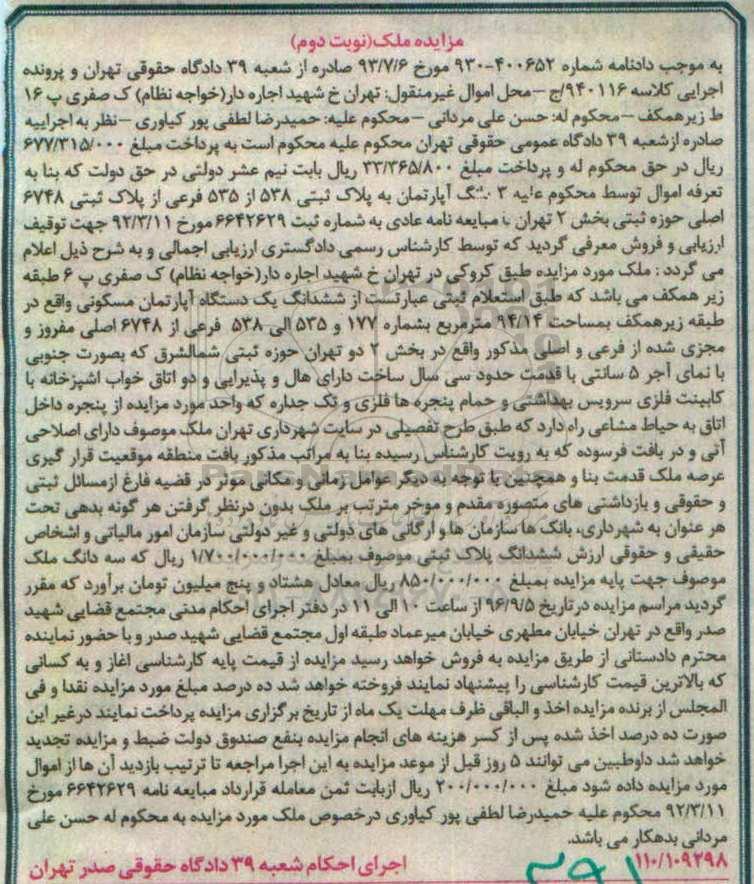 مزایده ملک(نوبت دوم)
به موجب دادنامه شماره ۹۳۰-۴۰۰۶۵۲ مورخ ۹۳/۷/۶ صادره از شعبه ۳۹ دادگاه حقوقی تهران و پرونده
اجرایی کلاسه ۹۴۰۱۱۶/ج -محل اموال غیرمنقول: تهران خ شهید اجاره دار(خواجه نظام) ک صفری پ ۱۶
ط زیرهمکف -محکوم له: حسن علی مردانی -محکوم علیه: حمیدرضا لطفی پور کیاوری -نظر به اجراییه
صادره ازشعبه ۳۹ دادگاه عمومی حقوقی تهران محکوم علیه محکوم است به پرداخت مبلغ ۶۷۷/۳۱۵/۰۰۰
ریال در حق محکوم له و پرداخت مبلغ ۳۳/۳۶۵/۸۰۰ ریال بابت نیم عشر دولتی در حق دولت که بنا به
تعرفه اموال توسط محکوم علیه ۳ آپارتمان به پلاک ثبتی ۵۳۸ از ۵۳۵ فرعی از پلاک ثبتی ۶۷۴۸
اصلی حوزه ثبتی بخش ۲ تهران با مبایعه نامه عادی به شماره ثبت ۶۶۴۲۶۲۹ مورخ ۹۲/۳/۱۱ جهت توقیف
ارزیابی و فروش معرفی گردید که توسط کارشناس رسمی دادگستری ارزیابی اجمالی و به شرح ذیل اعلام
می گردد : ملک مورد مزایده طبق کروکی در تهران خ شهید اجاره دار(خواجه نظام) ک صفری پ ۶ طبقه
زیر همکف می باشد که طبق استعلام ثبتی عبارتست از ششدانگ یک دستگاه آپارتمان مسکونی واقع در
طبقه زیرهمکف بمساحت ۹۴/۱۴ مترمربع بشماره ۱۷۷ و ۵۳۵ الی ۵۳۸ فرعی از ۶۷۴۸ اصلی مفروز و
مجزی شده از فرعی و اصلی مذکور واقع در بخش ۲ دو تهران حوزه ثبتی شمالشرق که بصورت جنوبی
با نمای آجر ۵ سانتی با قدمت حدود سی سال ساخت دارای هال و پذیرایی و دو اتاق خواب اشپزخانه با
کابینت فلزی سرویس بهداشتی و حمام پنجره ها فلزی و تک جداره که واحد مورد مزایده از پنجره داخل
اتاق به حیاط مشاعی راه دارد که طبق طرح تفصیلی در سایت شهرداری تهران ملک موصوف دارای اصلاحی
آتی و در بافت فرسوده که به رویت کارشناس رسیده بنا به مراتب مذکور بافت منطقه موقعیت قرار گیری
عرصه ملک قدمت بنا و همچنین با توجه به دیگر عوامل زمانی و مکانی موثر در قضیه فارغ ازمسائل ثبتی
و حقوقی و بازداشتی های متصوره مقدم و موخر مترتب بر ملک بدون درنظر گرفتن هر گونه بدهی تحت
هر عنوان به شهرداری، بانک ها سازمان ها و ارگانی های دولتی و غیر دولتی سازمان امور مالیاتی و اشخاص
حقیقی و حقوقی ارزش ششدانگ پلاک ثبتی موصوف بمبلغ ۱/۷۰۰/۰۰۰/۰۰۰ ریال که سه دانگ ملک
موصوف جهت پایه مزایده بمبلغ ۸۵۰/۰۰۰/۰۰۰ ریال معادل هشتاد و پنج میلیون تومان برآورد که مقرر
گردید مراسم مزایده درتاریخ ۹۶/۹/۵ از ساعت ۱۰ الی ۱۱ در دفتر اجرای احکام مدنی مجتمع قضایی شهید
صدر واقع در تهران خیابان مطهری خیابان میرعماد طبقه اول مجتمع قضایی شهید صدر و با حضور نماینده
محترم دادستانی از طریق مزایده به فروش خواهد رسید مزایده از قیمت پایه کارشناسی اغاز و به کسانی
که بالاترین قیمت کارشناسی را پیشنهاد نمایند فروخته خواهد شد ده درصد مبلغ مورد مزایده نقدا و فی
المجلس از برنده مزایده اخذ و الباقی ظرف مهلت یک ماه از تاریخ برگزاری مزایده پرداخت نمایند درغیر این
صورت ده درصد اخذ شده پس از کسر هزینه های انجام مزایده بنفع صندوق دولت ضبط و مزایده تجدید
خواهد شد داوطبین می توانند ۵ روز قبل از موعد مزایده به این اجرا مراجعه تا ترتیب بازدید آن ها از اموال
مورد مزایده داده شود مبلغ ۲۰۰/۰۰۰/۰۰۰ ریال ازبابت ثمن معامله قرارداد مبایعه نامه ۶۶۴۲۶۲۹ مورخ
۹۲/۳/۱۱ محکوم علیه حمیدرضا لطفی پور کیاوری درخصوص ملک مورد مزایده به محکوم له حسن علی
مردانی بدهکار می باشد.
۱۱۰/۱۰۹۲۹۸ اجرای احکام شعبه ۳۹ دادگاه حقوقی صدر تهران